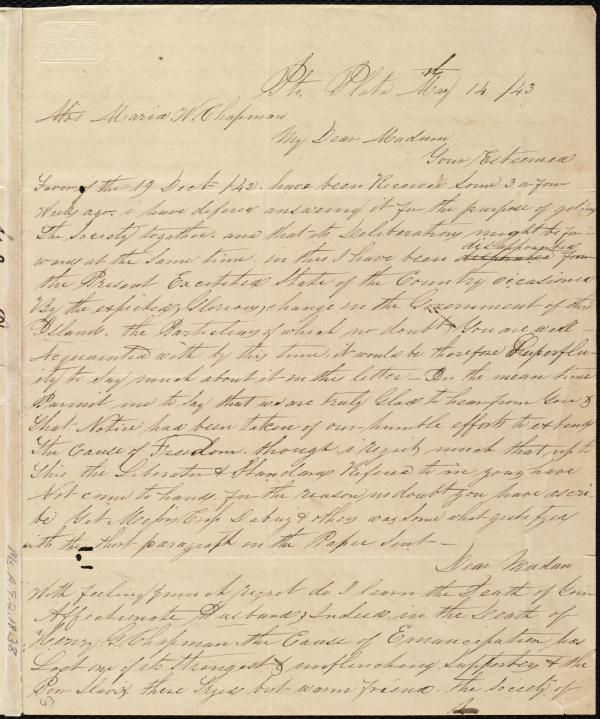 Pto. Plata May 14th /43
Mrs Maria W. Chapman
My Dear Madam
Your Esteemed
Favor of the 19 Decbr /42. have been Received some 3 or four
Weeks ago, i have defered answering it for the purpose of geting
The Society together. and that its Deliberations might be for-
ward at the same time, in this I have been disappointed from
the Present Excited State of the Country occasioned
By the expected, Glorious, change in the Government of this
Island. the Particulars of which no doubt You are well
Acquainted with by this time, it would be therefore Superflu-
ity to Say much about it in this letter — In the mean time
Permit me to Say that we are truly Glad to hear from You &
that Notice had been taken of our humble efforts to extend
The Cause of Freedom. though i regret much that up to
this the Liberator & Standard Refered to in yours have
Not come to hand, for the reason no doubt you have ascri-
be Yet Messrs & others was some what
with the short paragraph on the Paper Sent —
Dear Madam
With feeling of much regret do I learn the Death of Your
Affectionate Husband, Indeed in the Death of
Henry G. Chapman the Cause of Emancipation has
Lost one of its Strongest & unflinching Supporters & the
Poor Slaves there but warm friend. the Society of
Ms.A.9.2.18.38
63